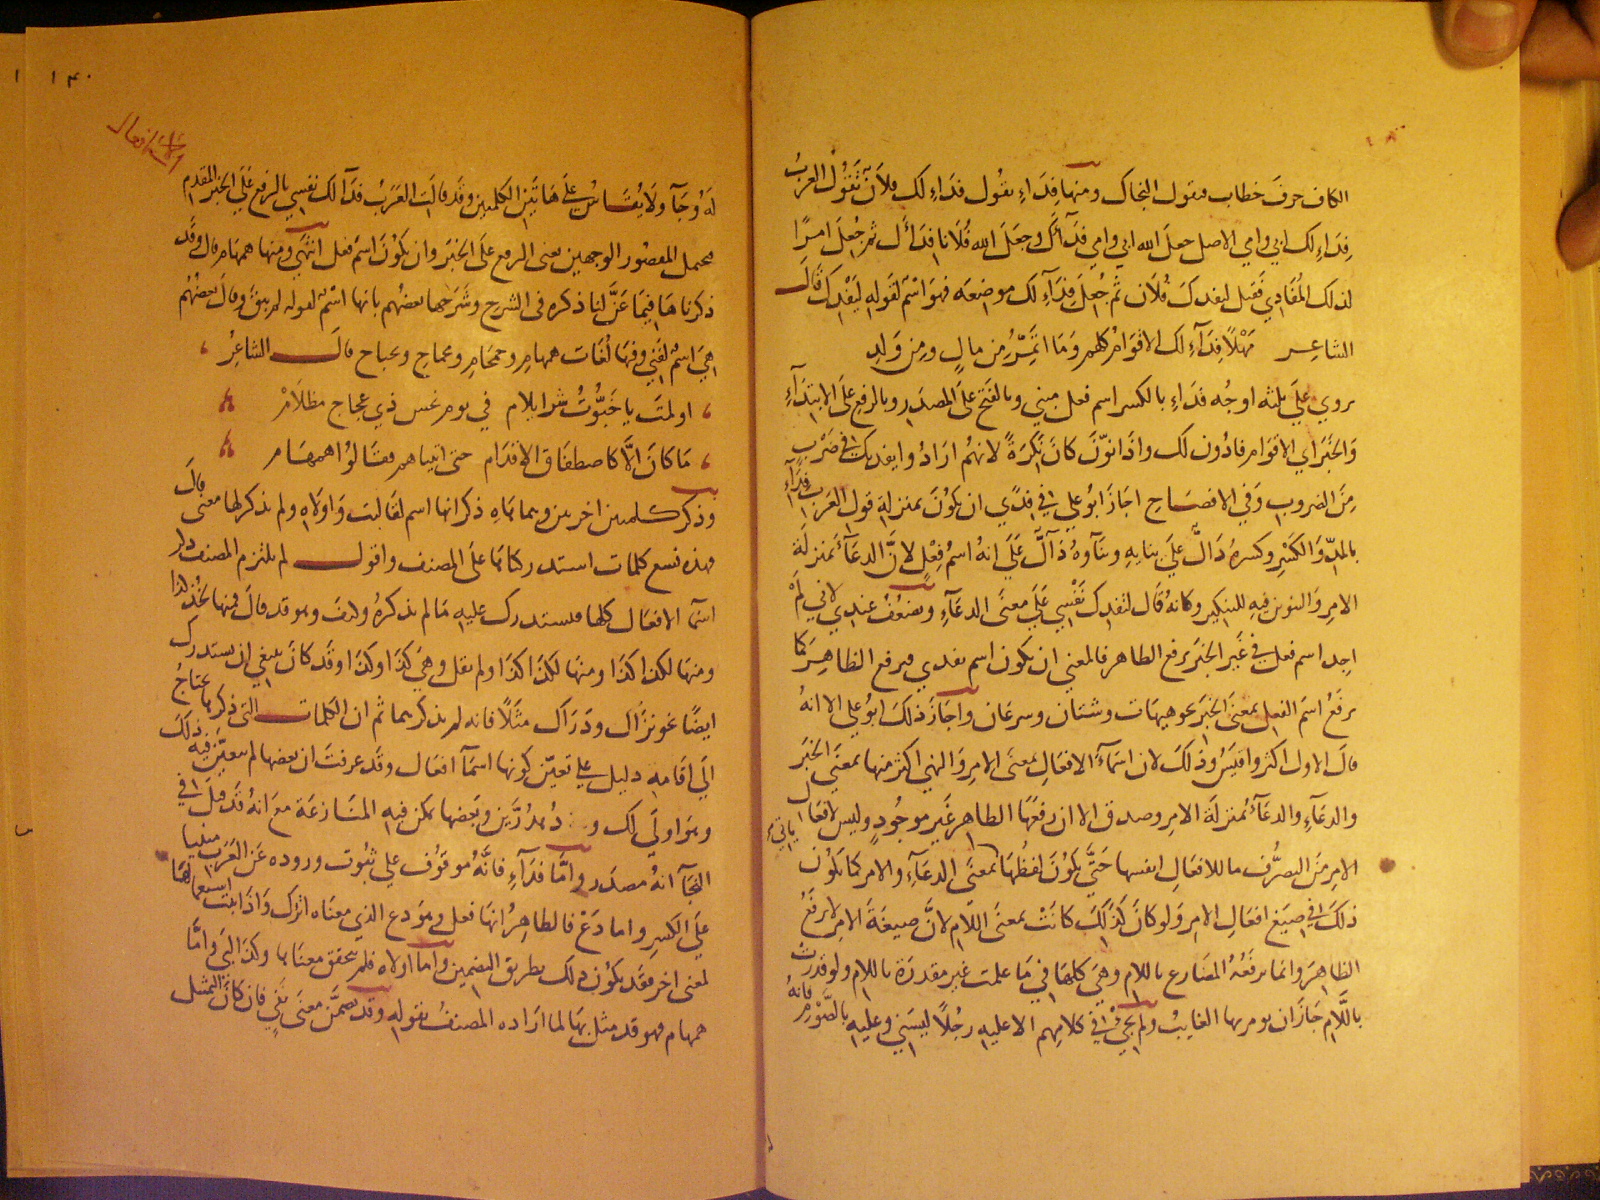 الكاف حرف خطاب فتقول النجاك ومنها فداءِ تقول فداءِ لك فلان تقول العرب
فداءِ لك ابي وامي الاصل جعل الله ابي وامي فدآءك وجعل الله فلانا فداك ثم جعل امرًا
لذلك المفادي فقيل ليفدك فلان ثم جعل فدآءِ لك موضعه فهو اسم لقوله ليفدك قال
الشاعر مهلًا فدآءِ لك الاقوام كلهم وما اثمّر من مالٍ ومن ولدِ
يروي على ثلثه اوجه فداءِ بالكسر اسم فعل مبني وبالفتح على المصدر وبالرفع على الابتداءِ
والخبر اي الاقوام فادون لك واذا نوّن كان نكرةً لانهم ارادوا يفديك في ضرب
من الضروب وفي الافصاح اجاز ابو علي في فدًي ان يكون بمنزلة قول العرب فدآءِ
بالمدّ والكسر وكسره دالّ علي بنايه وبنآوه دالّ علي انه اسم فعلٍ لان الدعآء بمنزلة
الامر والتنوين فيه للتنكير وكانه قال لتفدك نفسي علي معنى الدعآء ويضعف عندي لاني لم
اجد اسم فعل في غير الخبر يرفع الظاهر فالمعني ان يكون اسم يفدي فيرفع الظاهر كما
يرفع اسم الفعل بمعنى الخبر نحو هيهات وشتان وسرعان واجاز ذلك ابو علي الا انه
قال الاول اكثر واقيس وذلك لان اسمآء الافعال بمعنى الامر والنهي اكثر منها بمعني الخبر
والدعآء والدعآء بمنزلة الامر وصدق الا ان رفعها الظاهر غير موجودٍ وليس لافعال
الامر من التصرّف ما للافعال انفسها حتّي يكون لفظها بمعنى الدعآء والامر كما يكون
ذلك في صيغ افعال الامر ولو كان كذلك كانت بمعنى اللام لانّ صيغة الامر لا يرفع
الظاهر وانما يرفعه المضارع باللام وهي كلها في ما علمت غير مقدرة باللام ولو قدرت
باللّام جاز ان يومر بها الغايب ولم يجئ في كلامهم الا عليه رجلًا ليسني وعليه بالصوم فانه
١٤٠
اسماء افعال
له وجآ ولا يقاس على هاتين الكلمتين وقد قالت العرب فدآ لك نفسي بالرفع علي الخبر المقدم
فيحمل المقصور الوجهين يعني الرفع على الخبر وان يكون اسم فعل انتهى ومنها همهام قال وقد
ذكرناها فيما عنّ لنا ذكره في الشرح وشرحها بعضهم بانها اسم لقوله لم يبق وقال بعضهم
هي اسم لفني وفيها لغات همهامِ وحمحامِ ومحماحِ وبحباح قال الشاعر
اولمت يا خنّوت شر ايلام في يوم نحس ذي عجاج مظلام
ما كان الّا كاصطفاق الاقدام حتى اتيناهم فقالوا همهام
وذكر كلمتين اخريين وهما هاهِ ذكر انها اسم لقاربت واولاهِ ولم يذكر لها معنى قال
فهذه تسع كلمات استدركناها على المصنف واقول لم يلتزم المصنف ذكر
اسما الافعال كلها فيستدرك عليه ما لم يذكره وكيف وهو قد قال فمنها لخُذ كذا
ومنها لكذا كذا ومنها لكذا كذا ولم يقل وهي كذا وكذا وقد كان ينبغي ان يستدرك
ايضًا نحو نزاك ودراك مثلًا فانه لم يذكرهما ثم ان الكلمات التي ذكرها يحتاج
الي اقامة دليل على تعيّن كونها اسمآ افعال وقد عرفت ان بعضها لم يتعيّن فيه ذلك
وهو اولي لك و دُهدُرّين وبعضها يمكن فيه المنازعة مع انه قد قيل في
النجآ انه مصدر وامّا فدآءِ فانّه موقوف علي ثبوت وروده عن العرب مبنيا
على الكسر واما دع فالظاهر انها فعل وهو دع الذي معناه اترك واذا ثبت استعمالها
لمعنى اخر فقد يكون ذلك بطريق التضمين واما اولاه فلم يتحقق معناها وكذا التي واما
همهام فهو قد مثل بها لما اراده المصنف بقوله وقد تضمن معنى نفي فان كان التمثيل